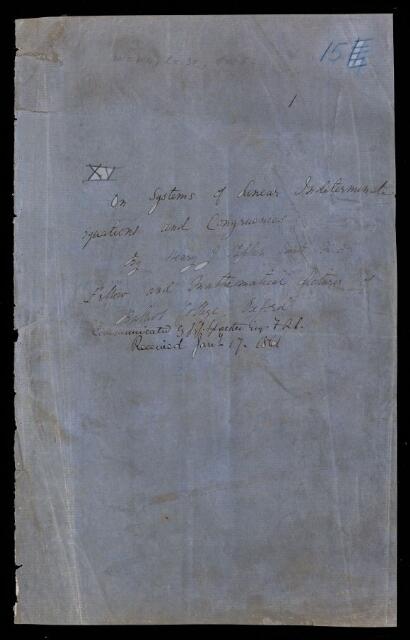 15
1
XV
On Systems of Linear Indeterminate
Equations and Congruences
By Henry J.
Fellow and Mathematical Lecturer of
Balliol College Oxford
Communicated by Esq. F.R.S.
Received Jany 17. 1861